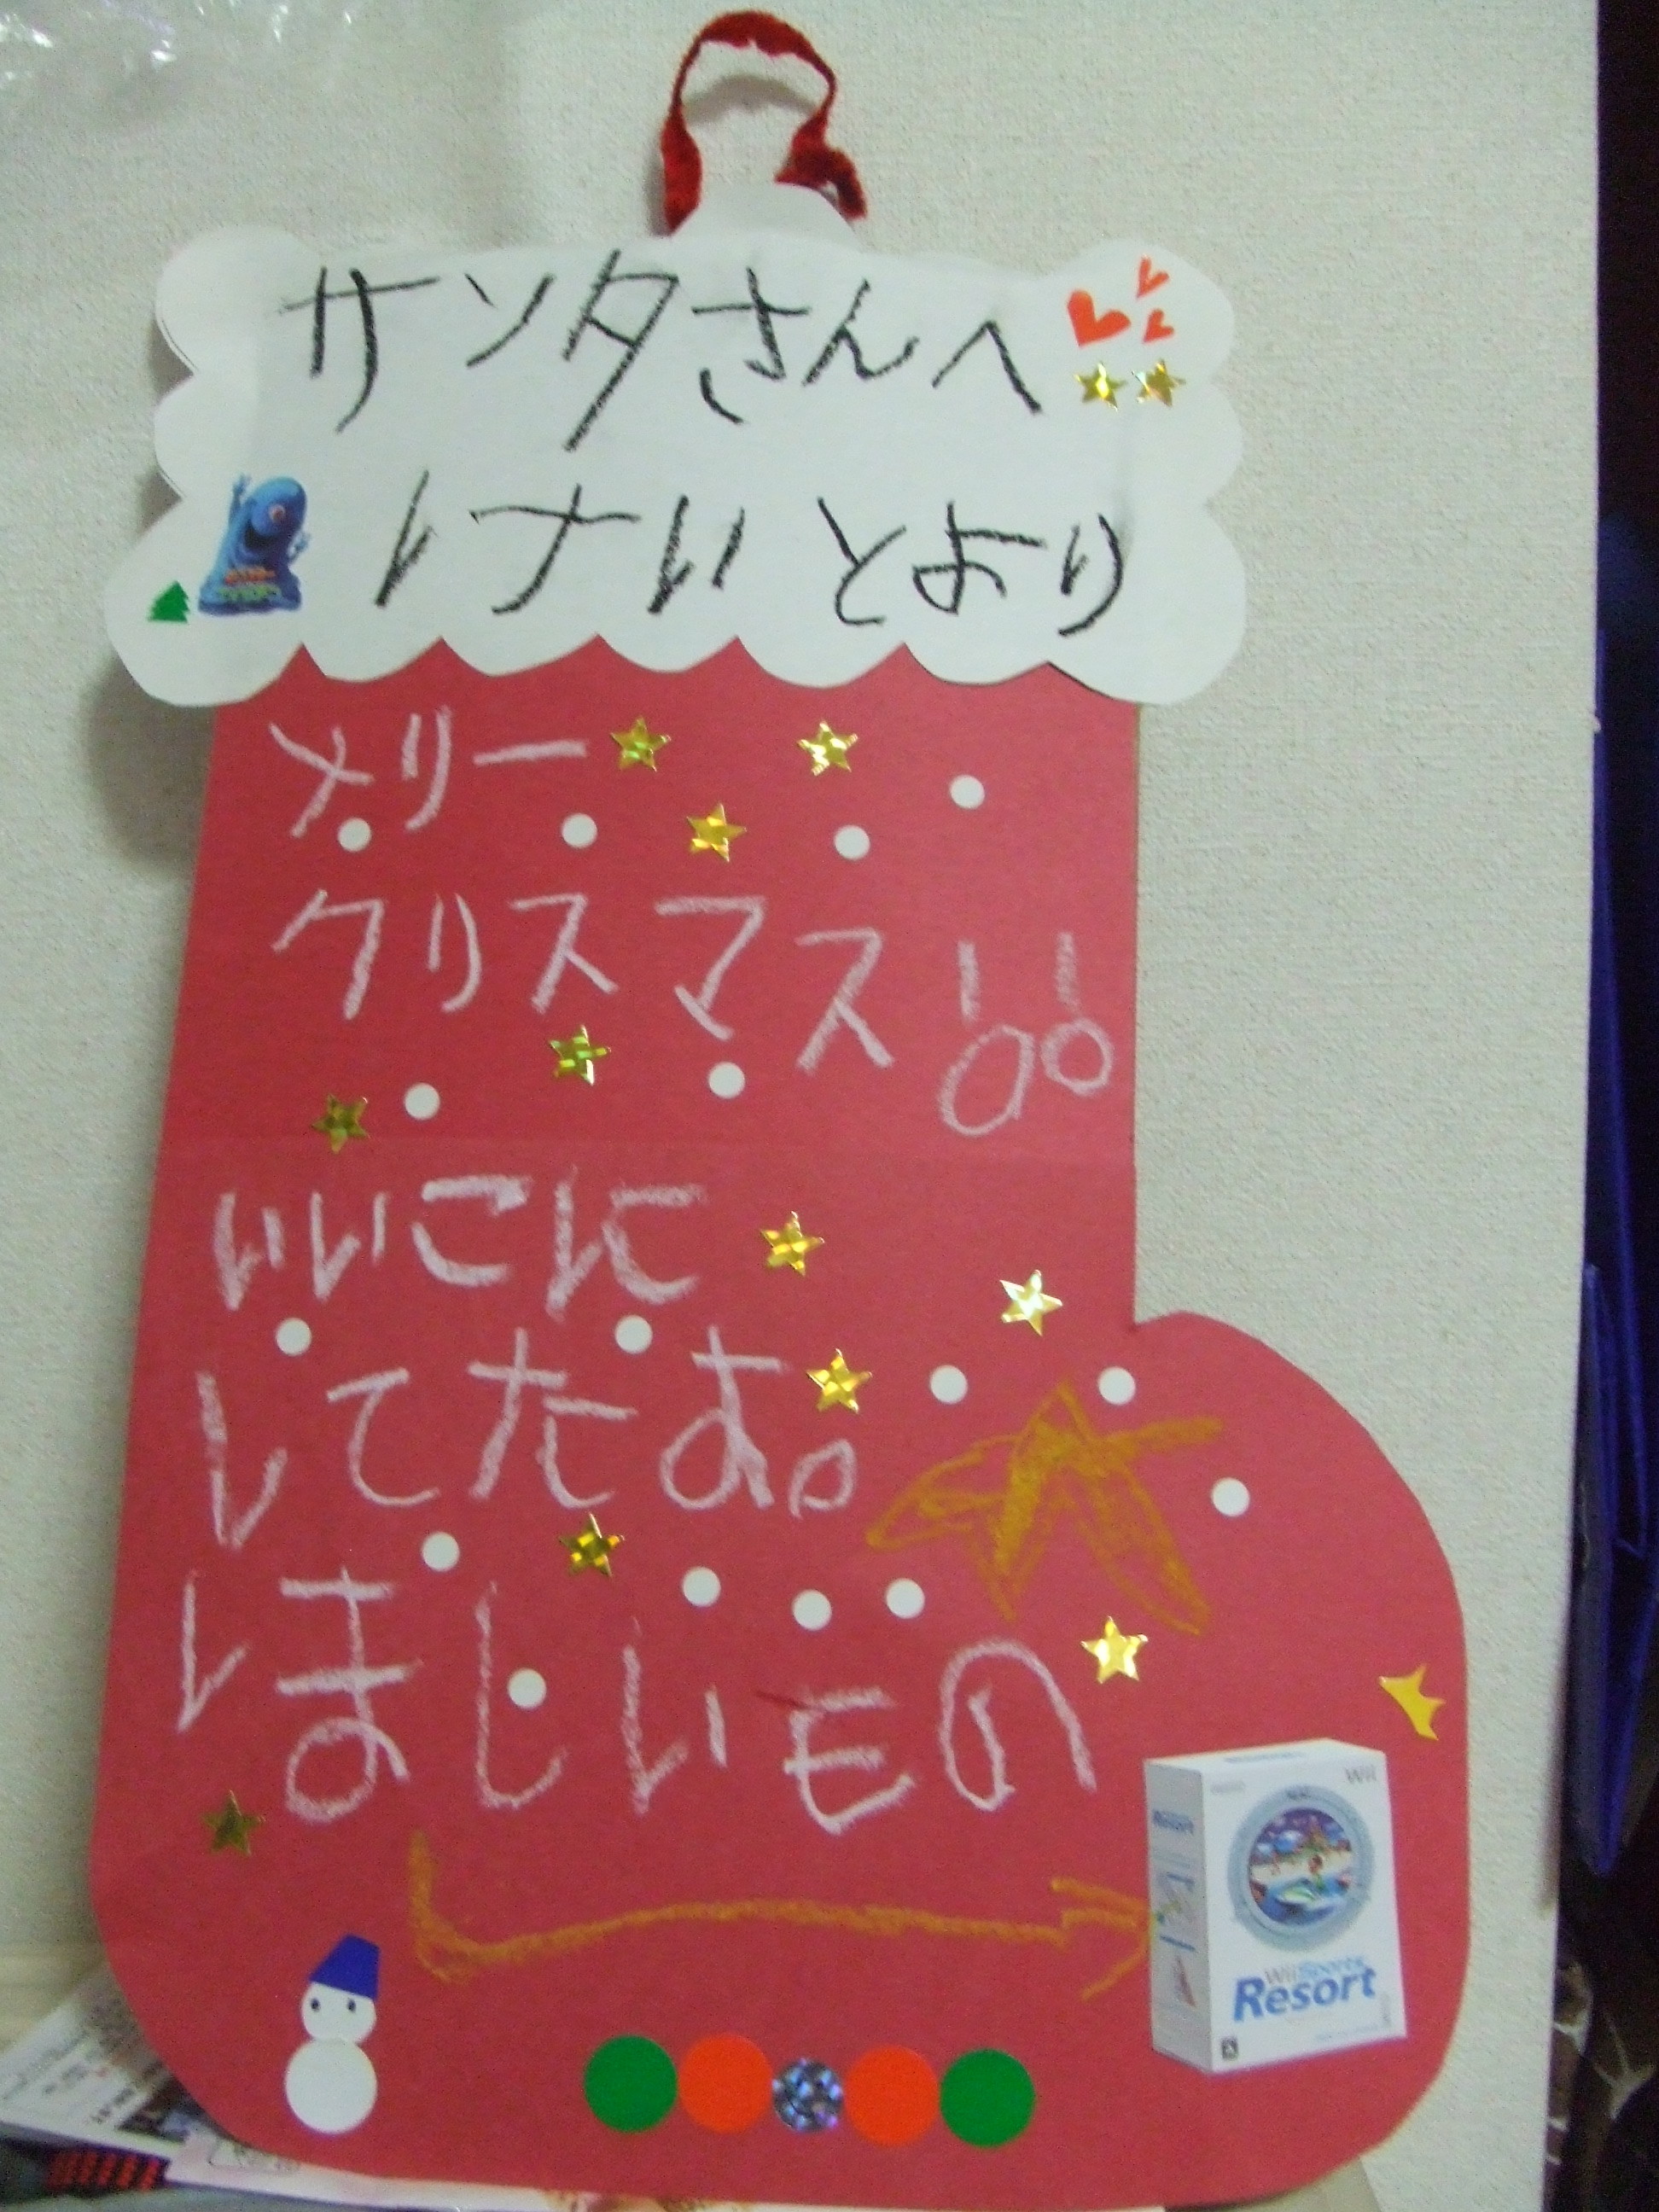 サンタさんへ
けいとより
メリー
クリスマス!!
いいこに
してたよ。
ほしいもの
Wii
Resort
Wii Sports
Resort